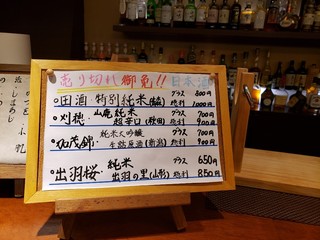 売り切れ御免!! 日本酒
・田酒 特別純米(青森) グラス 800円
徳利 1000円
・刈穂 山廃純米 グラス 700円
超辛口(秋田) 徳利 900円
・加茂錦 純米大吟醸 グラス 700円
生詰原酒(新潟) 徳利 900円
・出羽桜 純米 グラス 650円
出羽の里(山形) 徳利 850円